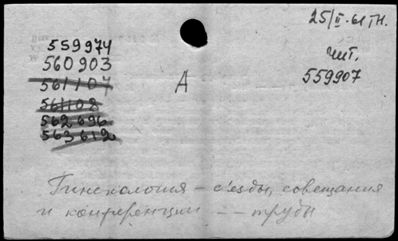 25/II-61 гн.
559974
560903
561107
561108
562696
563612
А
чит.
559907
Гинекология – съезды, совещания
и конференции – – труды